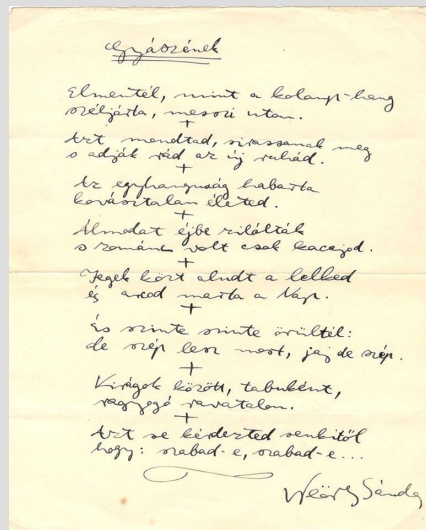 Gyászének
Elmentél, mint a kolomp-hang
széljárta, messzi utan.
+
Azt mondtad, sirassanak meg
s adják rád az új ruhád.
+
Az egyhangúság habarta
kovásztalan életed.
+
Álmodat éjbe zilálták
s románc volt csak kacajod.
+
Jegek közt aludt a lelked
és arcod marta a Nap.
+
És szinte szinte örültél:
de szép lesz most, jaj de szép.
+
Virágok között, tabuként,
ragyogó ravatalon.
+
Azt se kérdezted senkitől
hogy: szabad-e, szabad-e...
Weöres Sándor